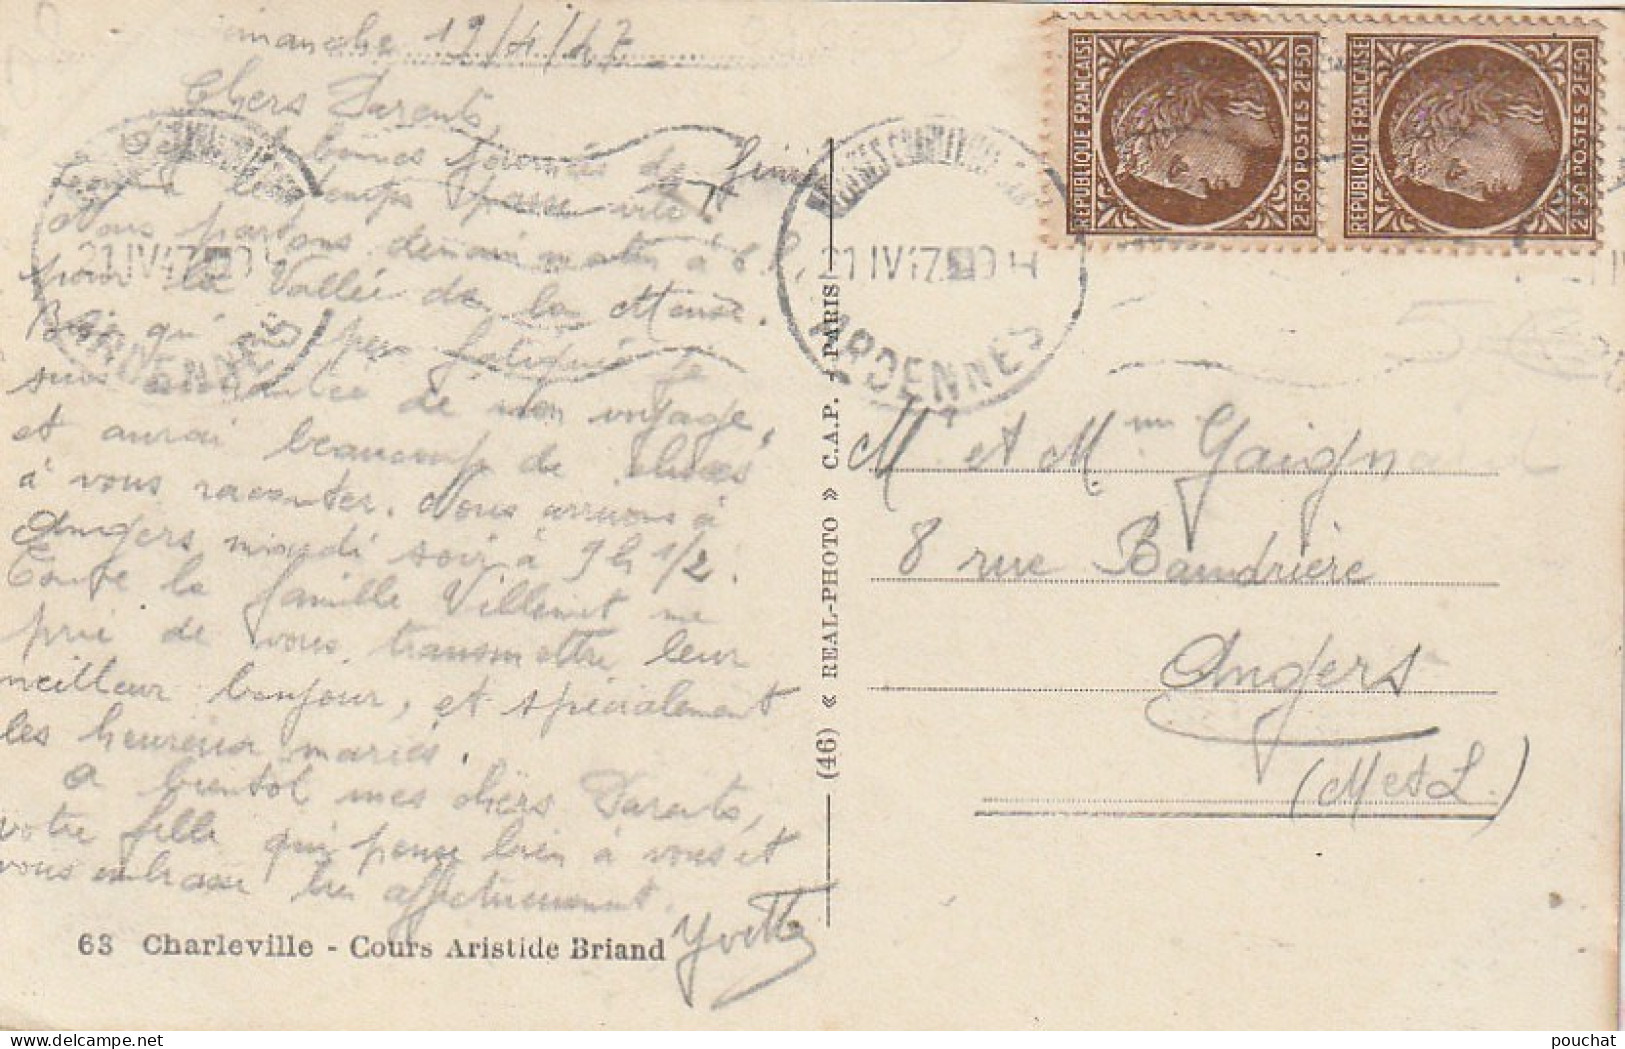 Dimanche 19/4/47
Chers Parents,
bonnes journées de
Comme le temps passe vite!
Nous partons demain matin à 6 h,
pour la Vallée de la Meuse.
Bien qu' peu fatiguée je
suis enchantée de mon voyage,
et aurai beaucoup de choses
à vous raconter. Nous arrivons à
Angers mardi soir à 9h 1/2.
Toute la famille Villemot me
prie de vous transmettre leur
meilleur bonjour, et spécialement
les heureux mariés.
A bientot mes chers Parents,
votre fille qui pense bien à vous et
vous embrasse bien affectueusement.
Yvette
63 Charleville - Cours Aristide Briand
(46) « REAL-PHOTO » C.A.P. - PARIS
21 IV 47
ARDENNES
21 IV 47
ARDENNES
REPUBLIQUE FRANÇAISE
2F50 POSTES 2F50
REPUBLIQUE FRANÇAISE
2F50 POSTES 2F50
M et Mme Gaignard
8 rue Baudrière
Angers
(M et L.)
pouchat